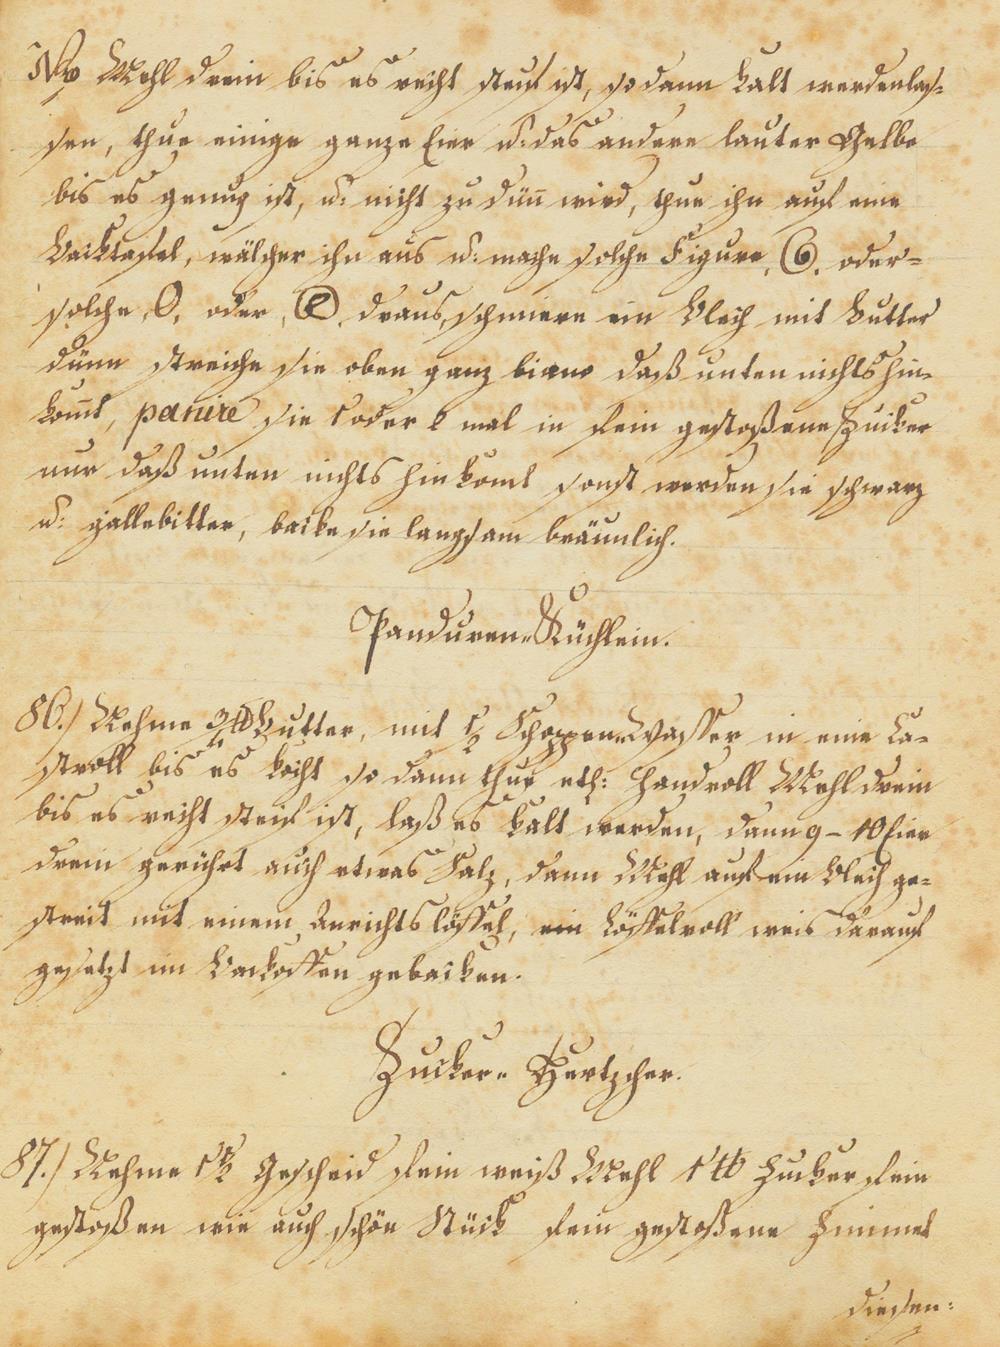 Mehl drein bis es recht steif ist, so dann kalt werdenlas-
sen, thue einige ganze Eier u: das andere lauter Gelbe
bis es genug ist, u: nicht zu dün̅ wird, thue ihn auf eine
Backtafel, wälcher ihn aus u: mache solche Figure, oder=
solche, O, oder, draus, schmiere ein Blech mit Butter
dünn streiche sie oben ganz daß unten nichts hin-
kom̅t, panire sie 1 oder 2 mal in fein gestoßene Zucker
nur daß unten nichts hinkomt sonst werden sie schwarz
u: gallebitter, backe sie langsam bräunlich.
Panduren-Küchlein.
86.) Nehme 3/4 ℔ Butter, mit 1/2 Schoppen Wasser in eine Ca-
stroll bis es kocht so dann thue etl: Handvoll Mehl drein
bis es recht steif ist, laß es kalt werden, dann 9-10 Eier
drein gerührt auch etwas Salz, dann Mehl auf ein Blech ge-
streit mit einem Anrichtslöffel, ein Löffelvoll weis darauf
gesetzt im Backoffen gebacken.
Zucker-Hertzcher.
87.) Nehme 1 1/2 Gescheid fein weiß Mehl 1 ℔ Zucker fein
gestoßen wie auch schön Stück fein gestoßene Zimmet
diesen: